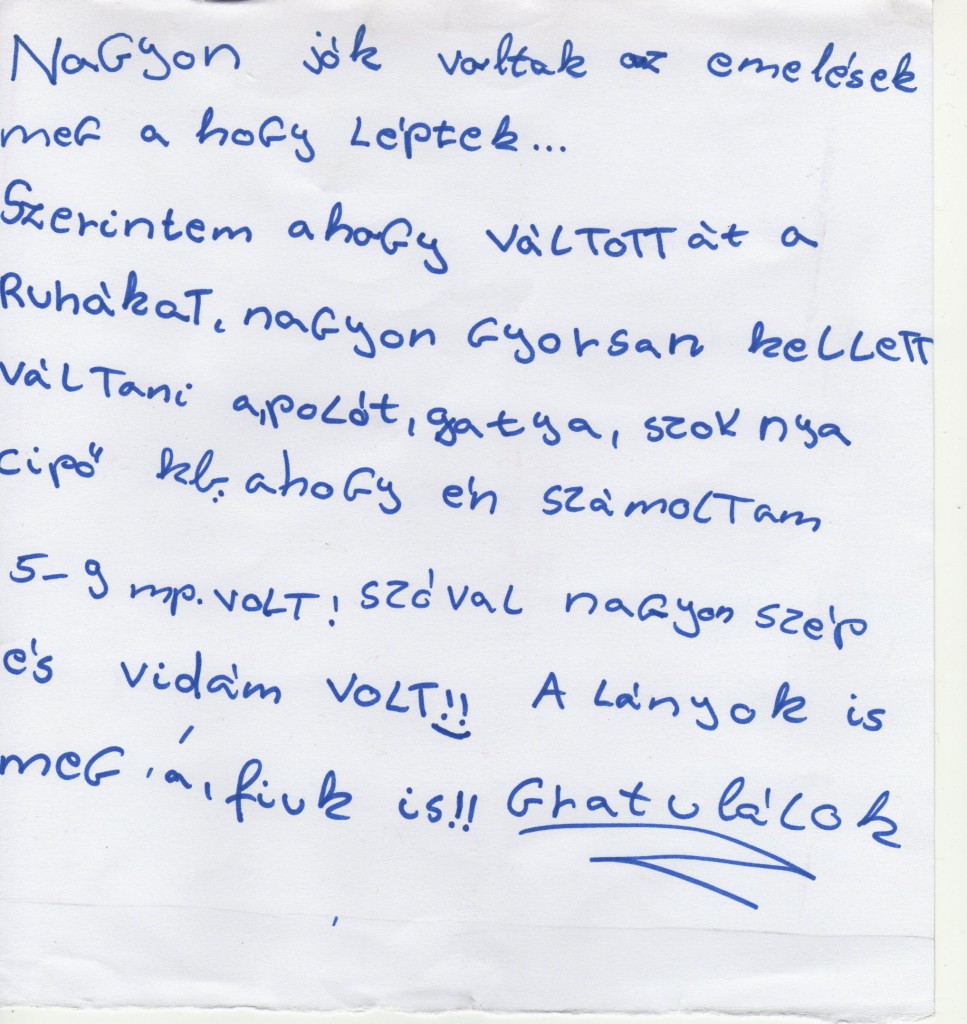 NaGyon jók voltak az emelések
meG a hoGy Léptek...
Szerintem ahoGy VáLTOTT át a
Ruhákat, naGyon Gyorsan keLLeTT
váLTani a, poLót, gatya, szoknya
cipő kb. ahoGy én számoLTam
5-9 mp. VOLT! szóvaL naGyon szép
és vidám VOLT!! A Lányok is
meG, á, fiuk is!! GratuLáLok